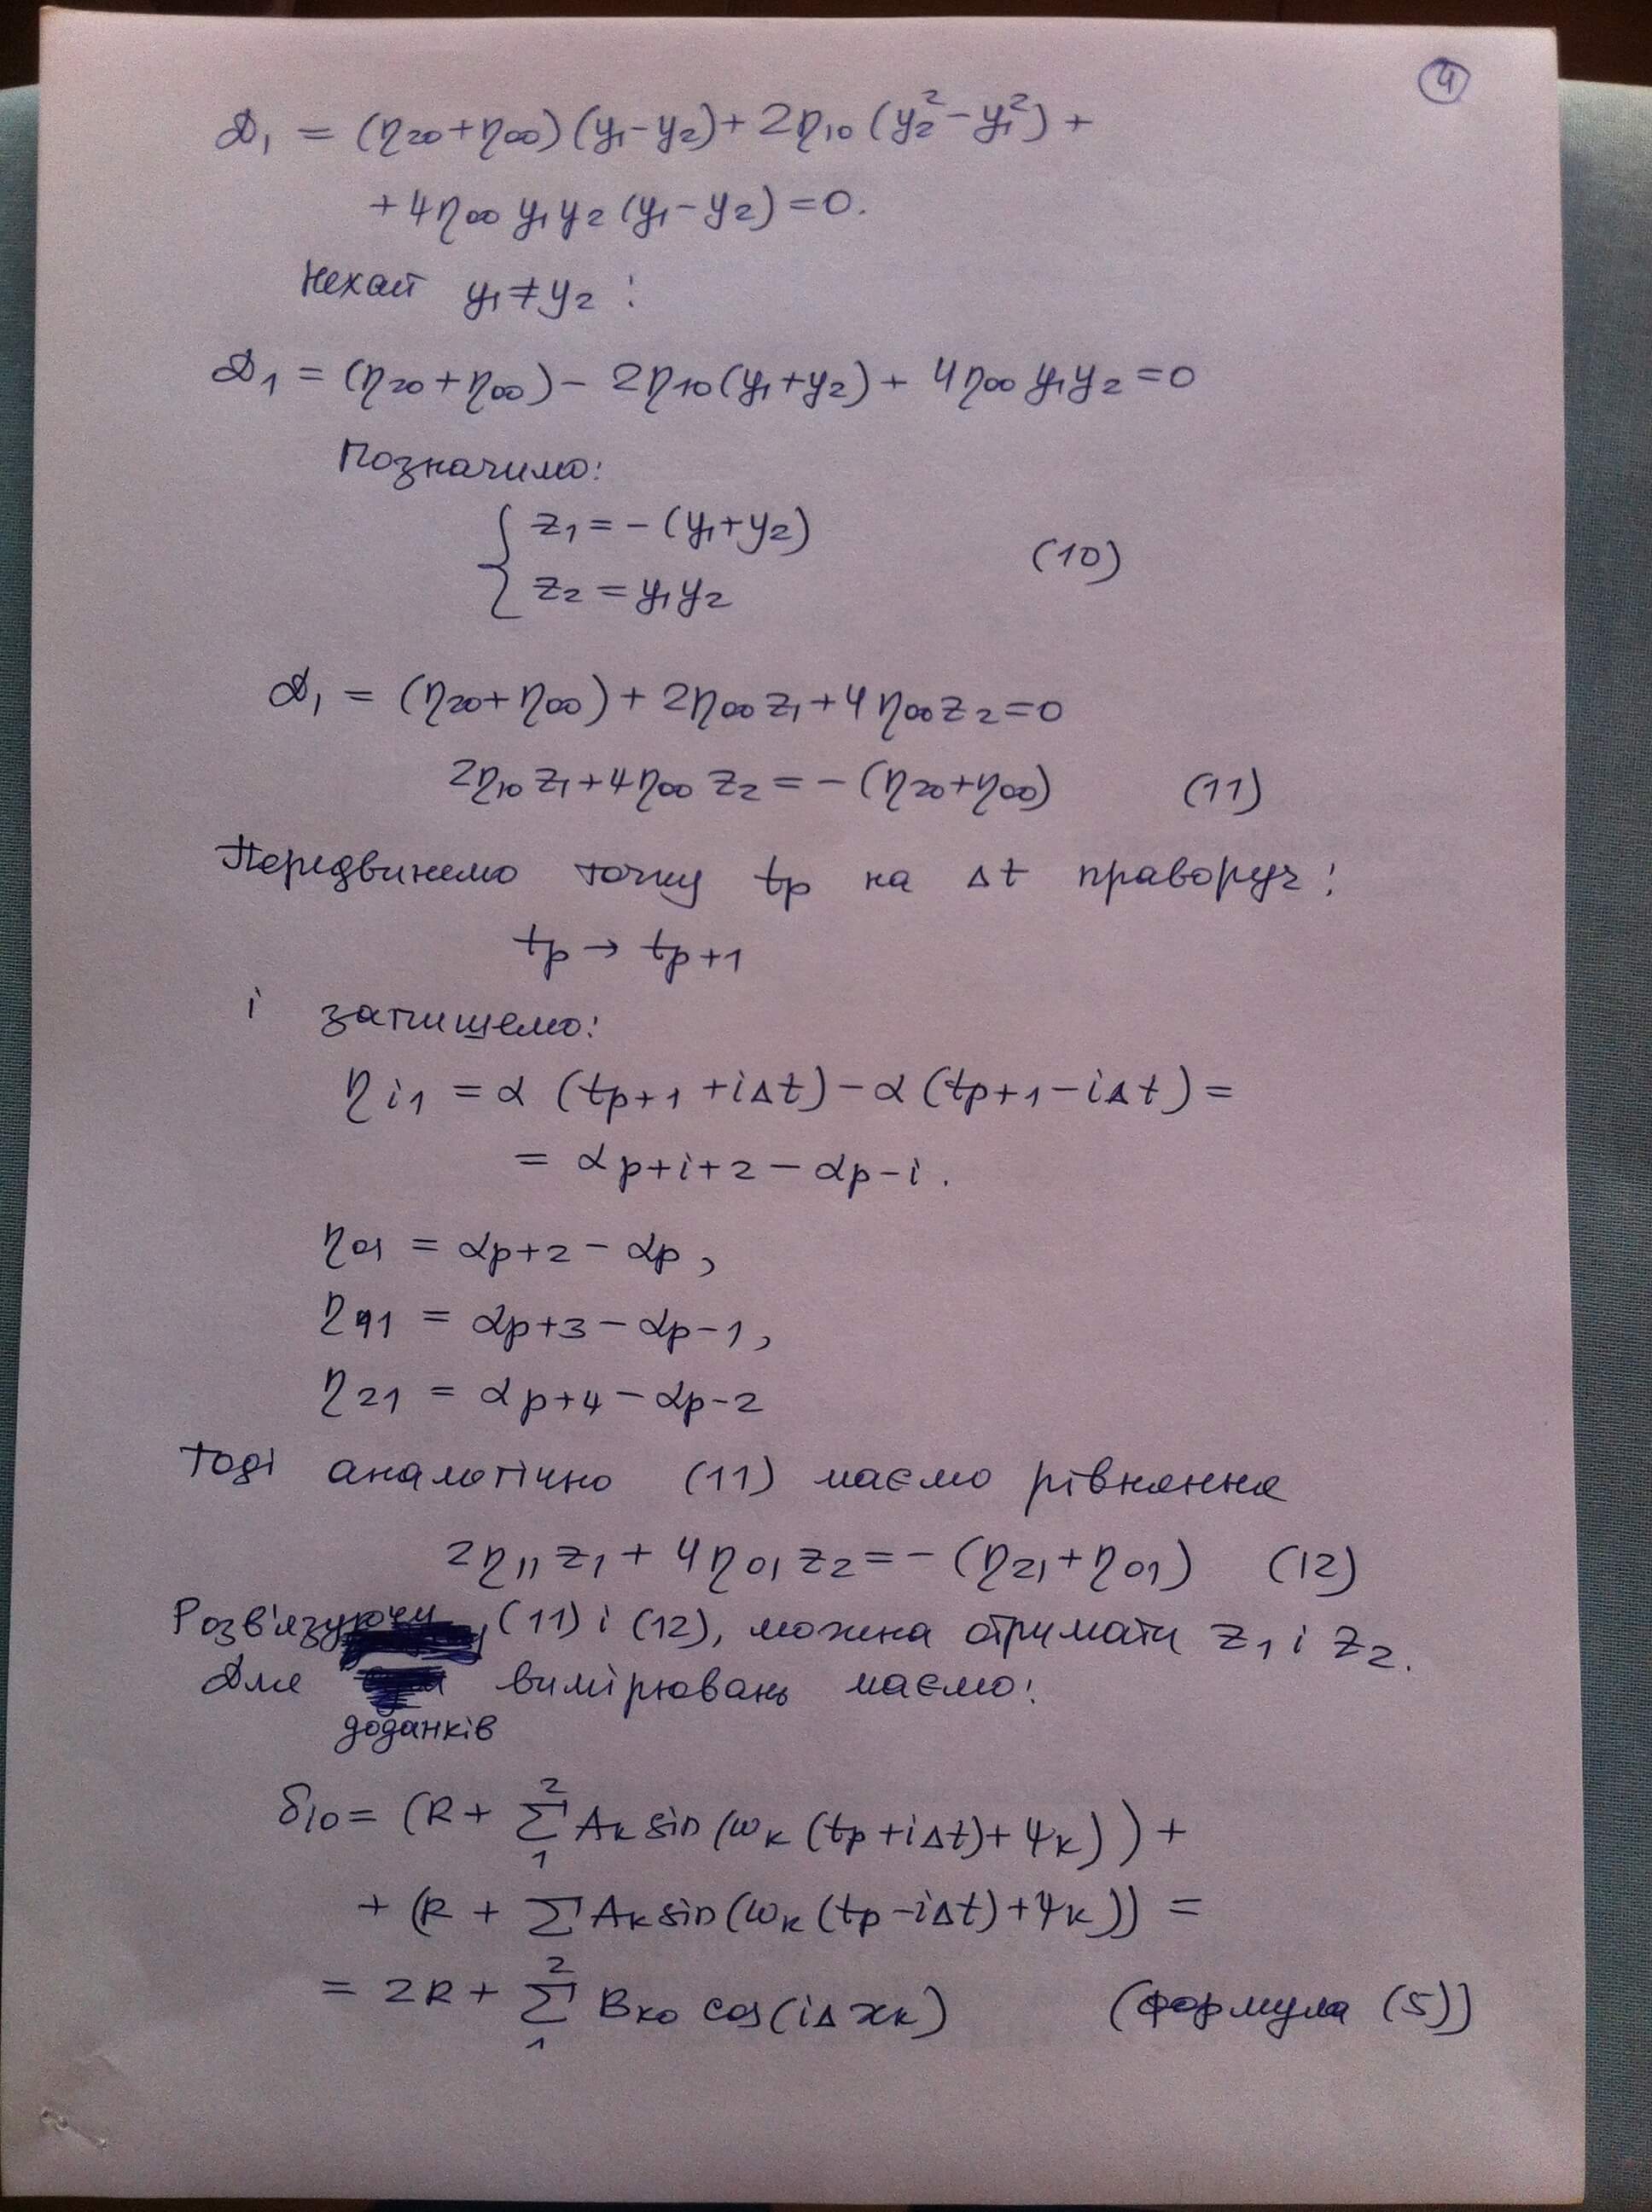 4
D₁ = (η₂₀+η₀₀)(y₁-y₂)+2η₁₀(y₂²-y₁²)+
+4η₀₀ y₁y₂(y₁-y₂)=0.
Нехай y₁≠y₂:
D₁ = (η₂₀+η₀₀)-2η₁₀(y₁+y₂)+4η₀₀y₁y₂=0
Позначимо:
z₁=-(y₁+y₂)
(10)
z₂=y₁y₂
D₁ = (η₂₀+η₀₀)+2η₀₀z₁+4η₀₀z₂=0
2η₁₀z₁+4η₀₀z₂=-(η₂₀+η₀₀) (11)
Передвинемо точку tp на Δt праворуч:
tp → tp+1
і запишемо:
ηi1 = α(tp+1+iΔt)-α(tp+1-iΔt)=
= αp+i+2-αp-i.
η01 = αp+2-αp,
η11 = αp+3-αp-1,
η21 = αp+4-αp-2
Тоді аналогічно (11) маємо рівняння
2η₁₁z₁+4η₀₁z₂=-(η₂₁+η₀₁) (12)
Розв'язуючи (11) і (12), можна отримати z₁ і z₂.
Для вимірювань маємо:
доданків
δi0=(R+∑₁² Aₖ sin(ωₖ(tp+iΔt)+ψₖ))+
+(R+∑Aₖ sin(ωₖ(tp-iΔt)+ψₖ))=
=2R+∑₁² Bₖ₀ cos(iΔxₖ) (формула (5))